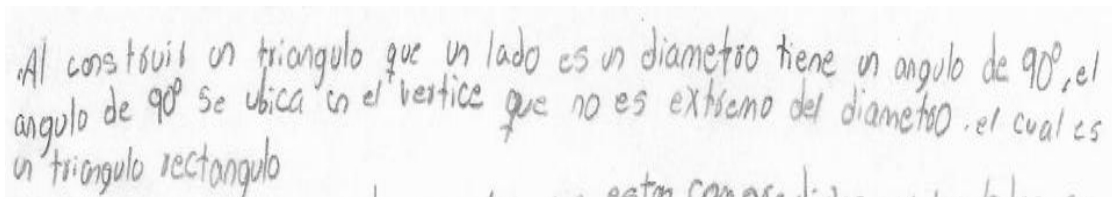 .Al construir un triangulo que un lado es un diametro tiene un angulo de 90º, el
angulo de 90º se ubica en el vertice que no es extremo del diametro. el cual es
un triangulo rectangulo